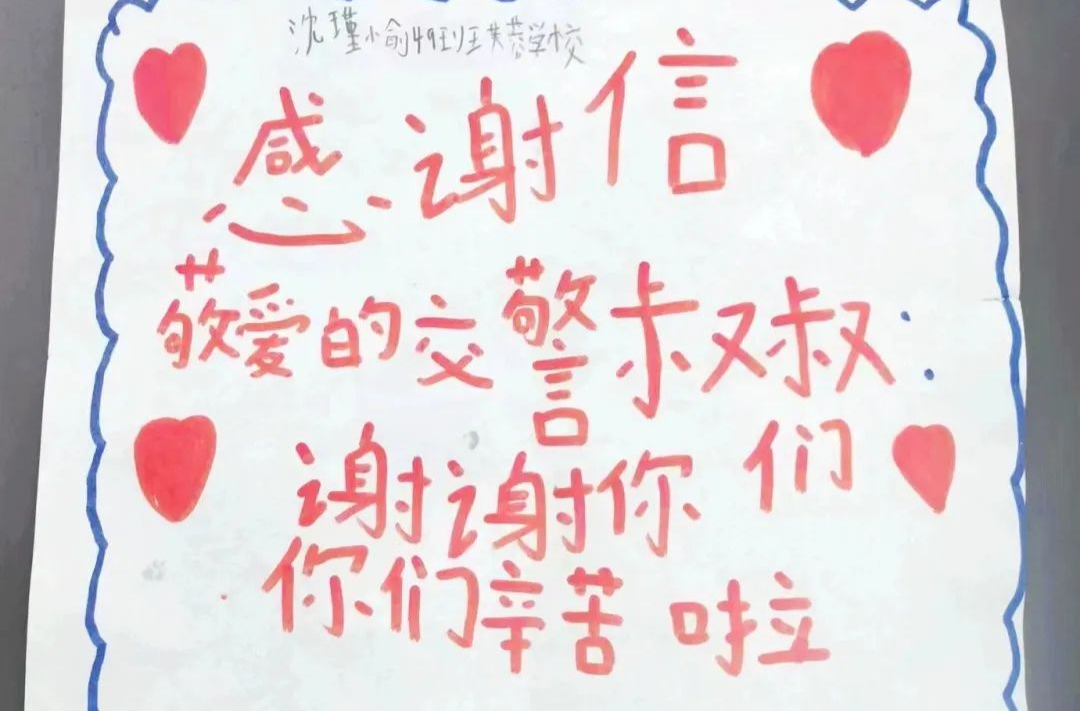 沈瑾小俞49班芙蓉学校
感谢信
敬爱的交警叔叔:
谢谢你们
你们辛苦啦